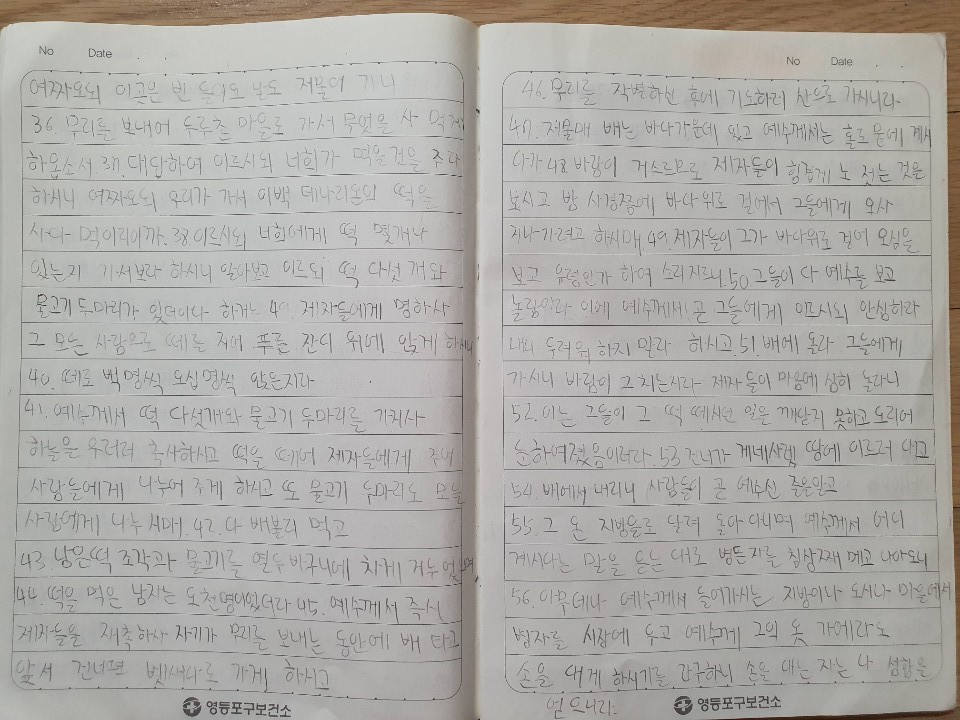 No Date
여짜오되 이곳은 빈 들이요 날도 저물어 가니
36. 무리를 보내어 두루촌 마을로 가서 무엇을 사 먹게
하옵소서 37. 대답하여 이르시되 너희가 먹을것을 주라
하시니 여짜오되 우리가 가서 이백 데나리온의 떡을
사다 먹이리이까. 38 이르시되 너희에게 떡 몇개나
있는지 가서보라 하시니 알아보고 이르되 떡 다섯 개와
물고기 두마리가 있더이다 하거늘 49. 제자들에게 명하사
그 모든 사람으로 떼를 지어 푸른 잔디 위에 앉게 하시니
40. 떼로 백명씩 오십명씩 앉은지라
41. 예수께서 떡 다섯개와 물고기 두마리를 가지사
하늘을 우러러 축사하시고 떡을 떼어 제자들에게 주어
사람들에게 나누어 주게 하시고 또 물고기 두마리도 모든
사람에게 나누시매. 42. 다 배불리 먹고
43. 남은떡 조각과 물고기를 열두바구니에 차게 거두었으며
44. 떡을 먹은 남자는 오천명이었더라 45. 예수께서 즉시
제자들을 재촉하사 자기가 무리를 보내는 동안에 배 타고
앞서 건너편 벳새다로 가게 하시고
영등포구보건소
No Date
46. 무리를 작별하신 후에 기도하러 산으로 가시니라
47. 저물매 배는 바다가운데 있고 예수께서는 홀로 뭍에 계시
다가 48. 바람이 거스르므로 제자들이 힘겹게 노 젓는 것을
보시고 밤 사경쯤에 바다위로 걸어서 그들에게 오사
지나가려고 하시매 49. 제자들이 그가 바다위로 걸어 오심을
보고 유령인가 하여 소리지르니. 50 그들이 다 예수를 보고
놀람이라 이에 예수께서 곧 그들에게 이르시되 안심하라
내니 두려워 하지 말라 하시고. 51. 배에 올라 그들에게
가시니 바람이 그치는지라 제자들이 마음에 심히 놀라니
52. 이는 그들이 그 떡 떼시던 일을 깨닫지 못하고 도리어
둔하여졌음이러라. 53 건너가 게네사렛 땅에 이르러 대고
54. 배에서 내리니 사람들이 곧 예수신 줄을알고
55. 그 온 지방으로 달려 돌아 다니며 예수께서 어디
계시다는 말을 듣는 대로 병든자를 침상째 메고 나아오니
56. 아무데나 예수께서 들어가시는 지방이나 도시나 마을에서
병자를 시장에 두고 예수께 그의 옷 가에라도
손을 대게 하시기를 간구하니 손을 대는 자는 다 성함을
얻으니라.
영등포구보건소